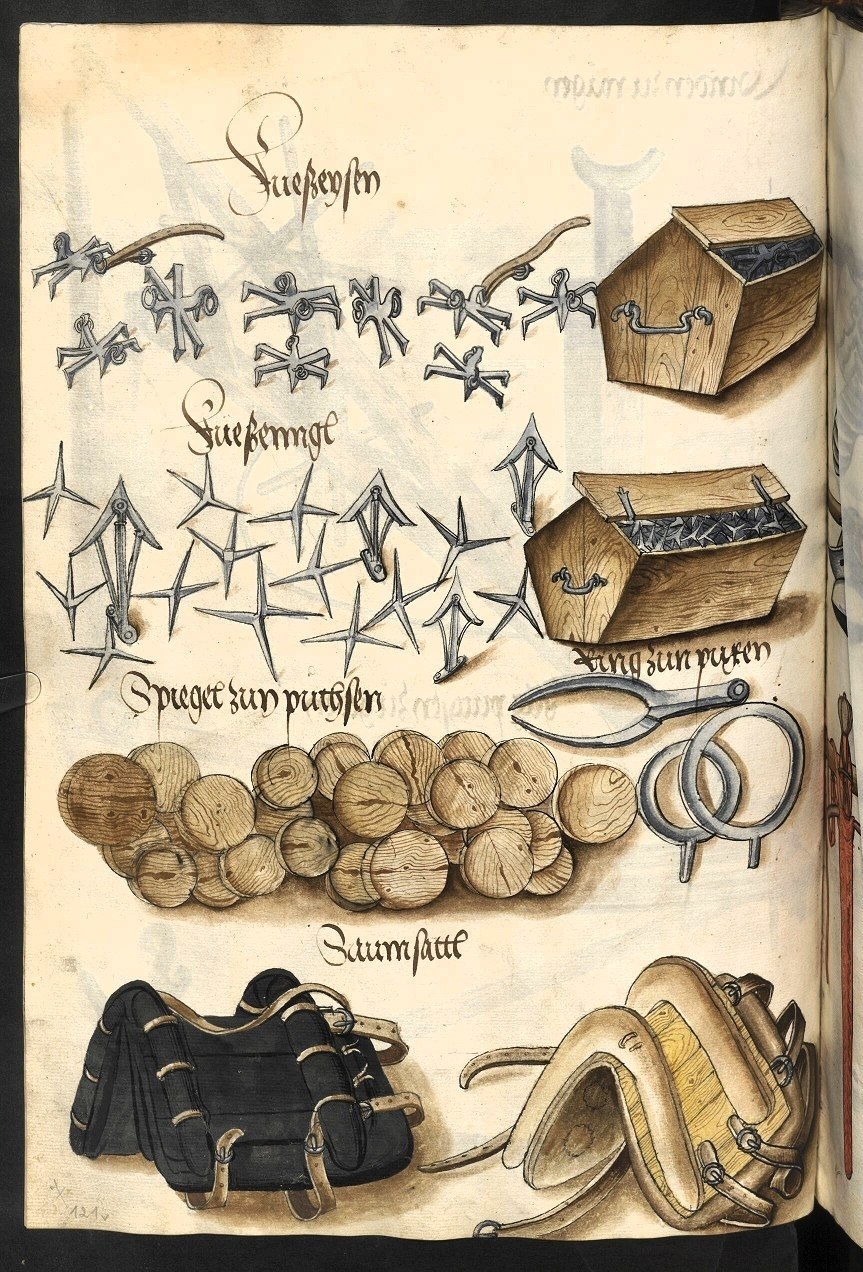 Fueßeysen
Fueßenngl
Ring zun puxen
Spiegel zun puchsen
Saumsattl
121v